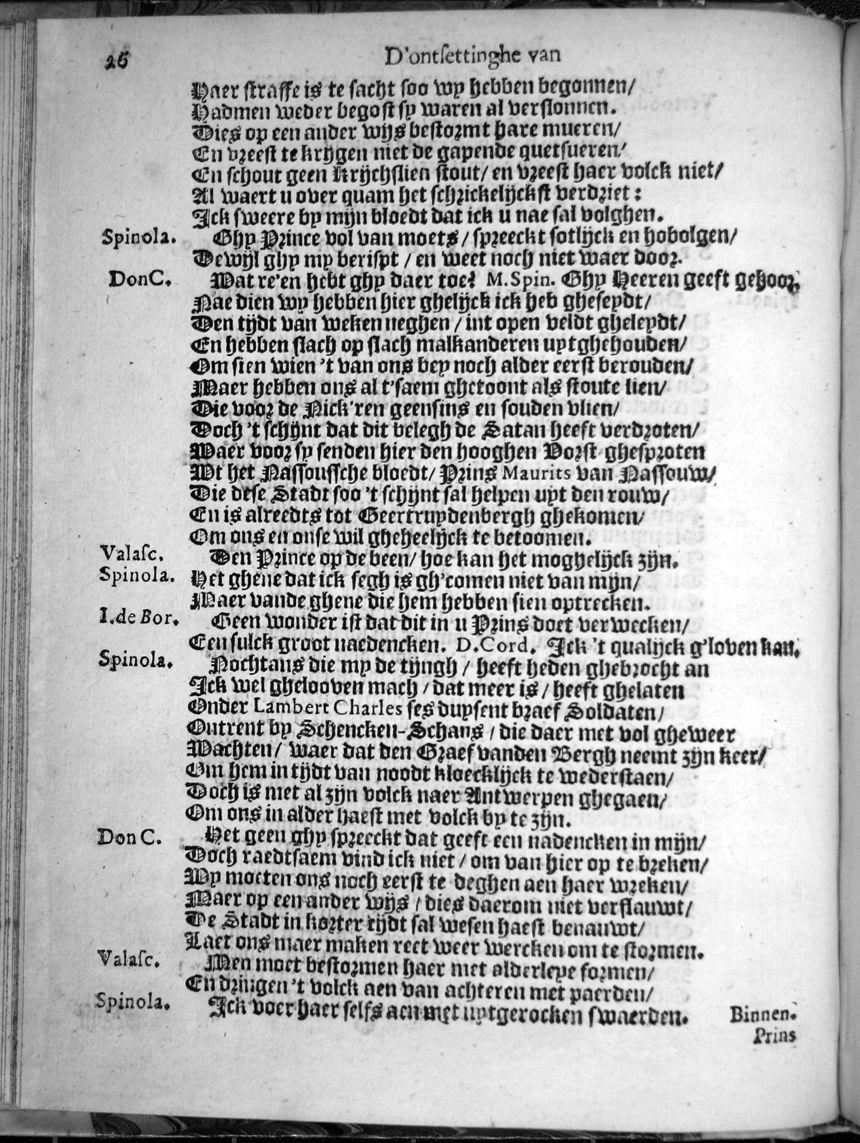 26 D'ontsettinghe van
Haer straffe is te sacht soo wy hebben begonnen/
Hadmen weder begost sy waren al verslonnen.
Dies op een ander wijs bestormt hare mueren/
En vreest te krijgen niet de gapende quetsueren/
En schout geen Krijchslien stout/ en vreest haer volck niet/
Al waert u over quam het schrickelijckst verdriet:
Ick sweere by mijn bloedt dat ick u nae sal volghen.
Spinola. Ghy Prince vol van moets/ spreeckt sotlijck en hobolgen/
Dewijl ghy my berispt/ en weet noch niet waer door.
Don C. Wat re'en hebt ghy daer toe? M. Spin. Ghy Heeren geeft gehoor,
Nae dien wy hebben hier ghelijck ick heb gheseydt/
Den tijdt van weken neghen/ int open veldt gheleydt/
En hebben slach op slach malkanderen uytghehouden/
Om sien wien 't van ons bey noch alder eerst berouden/
Maer hebben ons al t'saem ghetoont als stoute lien/
Die voor de Nick'ren geensins en souden vlien/
Doch 't schijnt dat dit belegh de Satan heeft verdroten/
Waer voor sy senden hier den hooghen Vorst ghesproten
Wt het Nassousche bloedt/ Prins Maurits van Nassouw/
Die dese Stadt soo 't schijnt sal helpen uyt den rouw/
En is alreedts tot Geertruydenbergh ghekomen/
Om ons en onse wil gheheelijck te betoomen.
Valasc. Den Prince op de been/ hoe kan het moghelijck zijn.
Spinola. Het ghene dat ick segh is gh'comen niet van mijn/
Maer vande ghene die hem hebben sien optrecken.
I. de Bor. Geen wonder ist dat dit in u Prins doet verwecken/
Een sulck groot naedencken. D. Cord. Ick 't qualijck g'loven kan.
Spinola. Nochtans die my de tijngh/ heeft heden ghebrocht an
Ick wel ghelooven mach/ dat meer is/ heeft ghelaten
Onder Lambert Charles ses duysent braef Soldaten/
Outrent by Schencken-Schans/ die daer met vol gheweer
Wachten/ waer dat den Graef vanden Bergh neemt zijn keer/
Om hem in tijdt van noodt kloecklijck te wederstaen/
Doch is met al zijn volck naer Antwerpen ghegaen/
Om ons in alder haest met volck by te zijn.
Don C. Het geen ghy spreeckt dat geeft een nadencken in mijn/
Doch raedtsaem vind ick niet/ om van hier op te breken/
Wy moeten ons noch eerst te deghen aen haer wreken/
Maer op een ander wijs/ dies daerom niet verflauwt/
De Stadt in korter tijdt sal wesen haest benauwt/
Laet ons maer maken reet weer wercken om te stormen.
Valasc. Men moet bestormen haer met alderleye formen/
En dringen 't volck aen van achteren met paerden/
Spinola. Ick voer haer selfs aen met uytgerocken swaerden. Binnen.
Prins